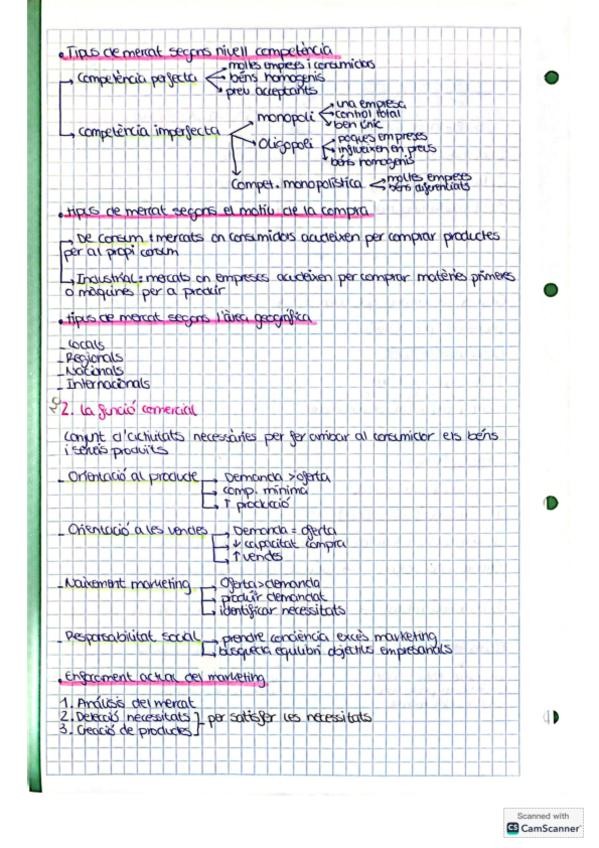 • Tipus de mercat segons nivell competència
→ Competència perfecta
→ moltes empreses i consumidors
→ béns homogenis
→ preu acceptants
→ Competència imperfecta
→ monopoli
→ una empresa
→ control total
→ ben únic
→ Oligopoli
→ poques empreses
→ influeixen en preus
→ béns homogenis
Compet. monopolística
→ moltes empreses
→ béns diferenciats
• tipus de mercat segons el motiu de la compra
→ De consum: mercats on consumidors acudeixen per comprar productes
per al propi consum
→ Industrial: mercats on empreses acudeixen per comprar matèries primeres
o màquines per a produir
• tipus de mercat segons l'àrea geogràfica
- Locals
- Regionals
- Nacionals
- Internacionals
2. La funció comercial
Conjunt d'activitats necessàries per fer arribar al consumidor els béns
i serveis produïts
- Orientació al producte → Demanda > oferta
→ comp. mínima
→ ↑ producció
- Orientació a les vendes → Demanda = oferta
→ ↓ capacitat compra
→ ↑ vendes
- Naixement marketing → Oferta > demanda
→ produir demandat
→ identificar necessitats
- Responsabilitat social → prendre conciència excés marketing
→ búsqueda equilibri objectius empresarials
• Enfocament actual del marketing
1. Anàlisis del mercat
2. Detecció necessitats } per satisfer les necessitats
3. Creació de productes
Scanned with
CS CamScanner